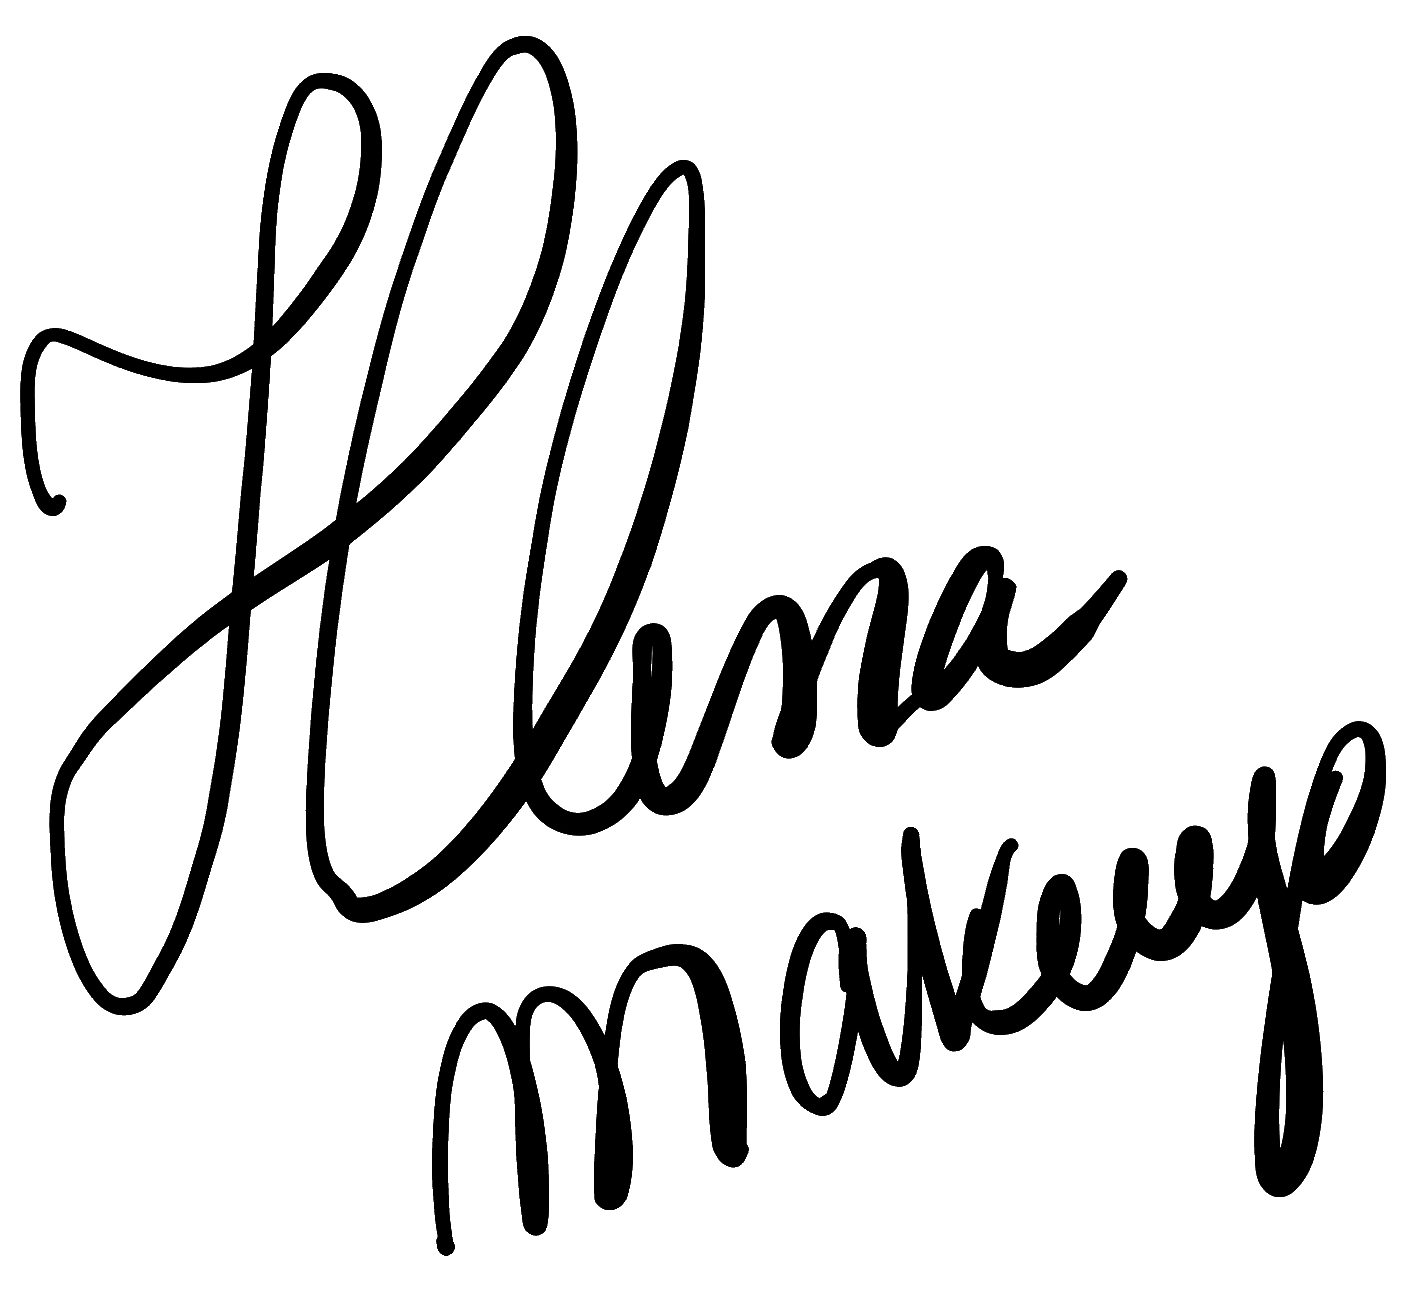 Hlena
makeup